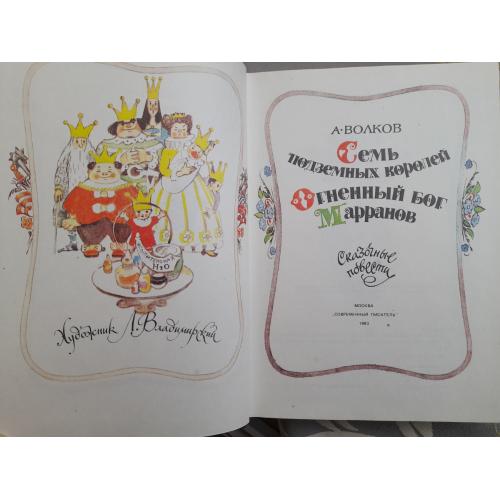 H₂O
Художник Л. Владимирский
А·ВОЛКОВ
Семь
подземных королей
Огненный бог
Марранов
Сказочные
повести
МОСКВА
„СОВРЕМЕННЫЙ ПИСАТЕЛЬ“
1993